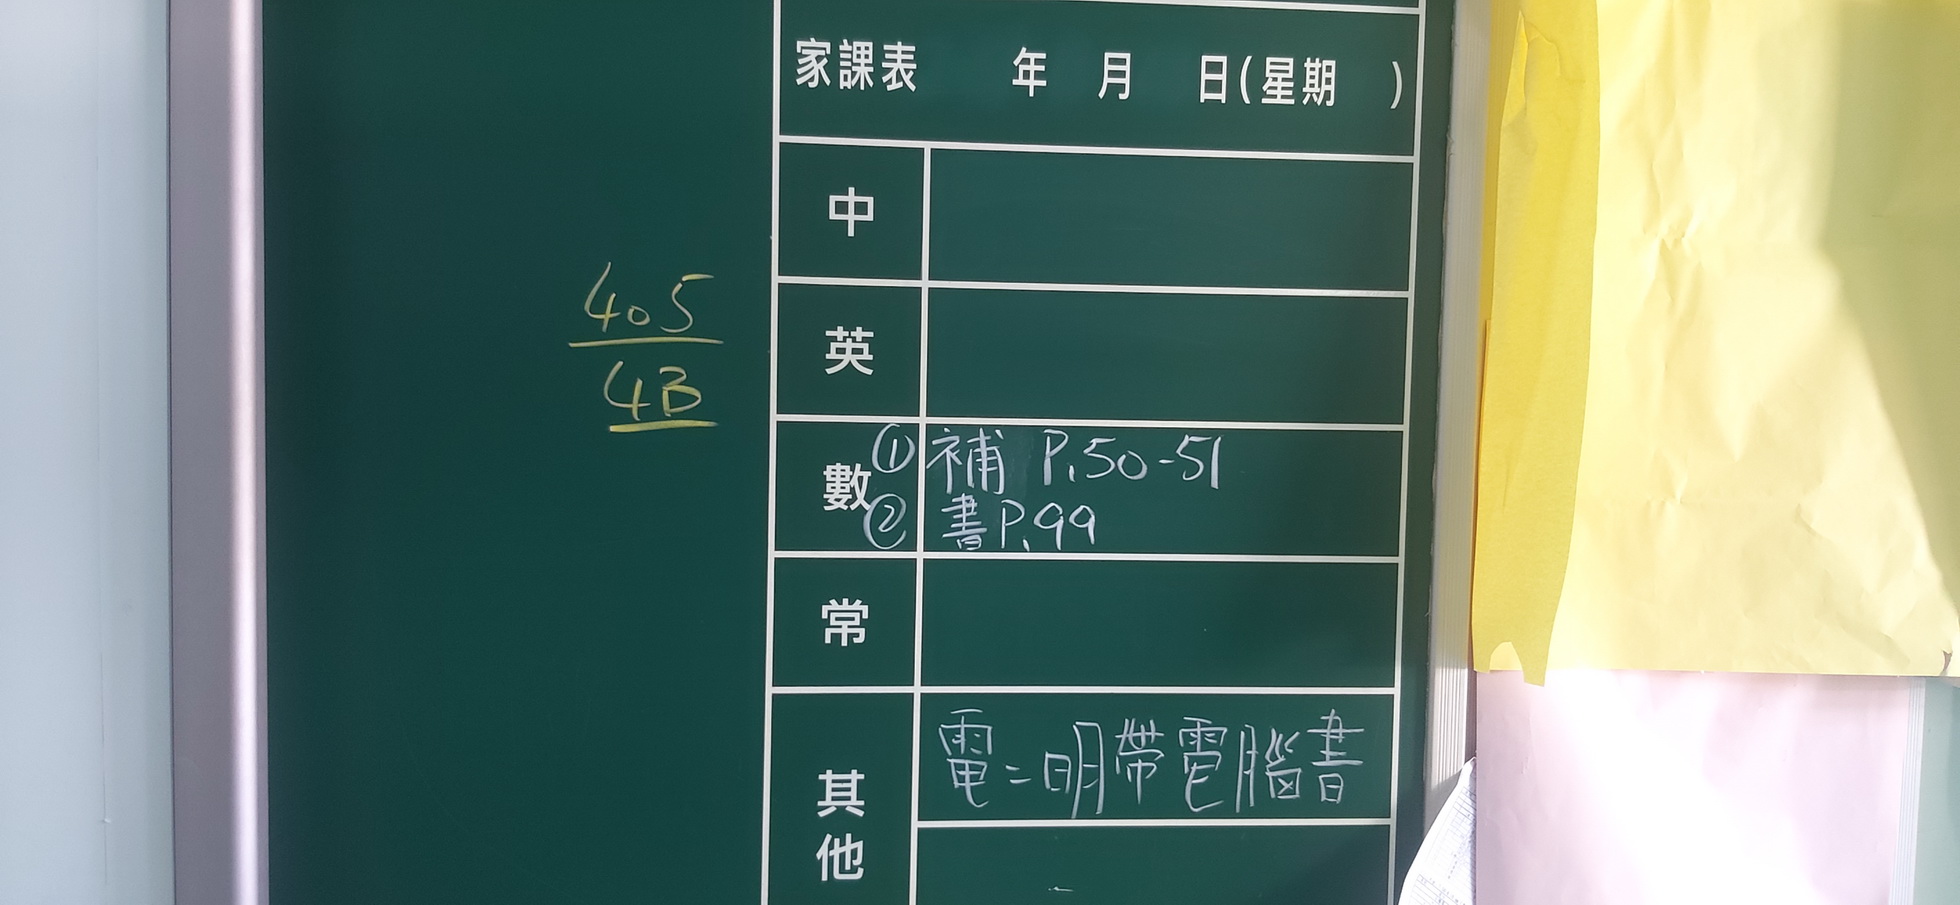 家課表 年 月 日(星期 )
中
英
405
4B
數
① 補 P.50-51
② 書P.99
常
其他
電=明帶電腦書